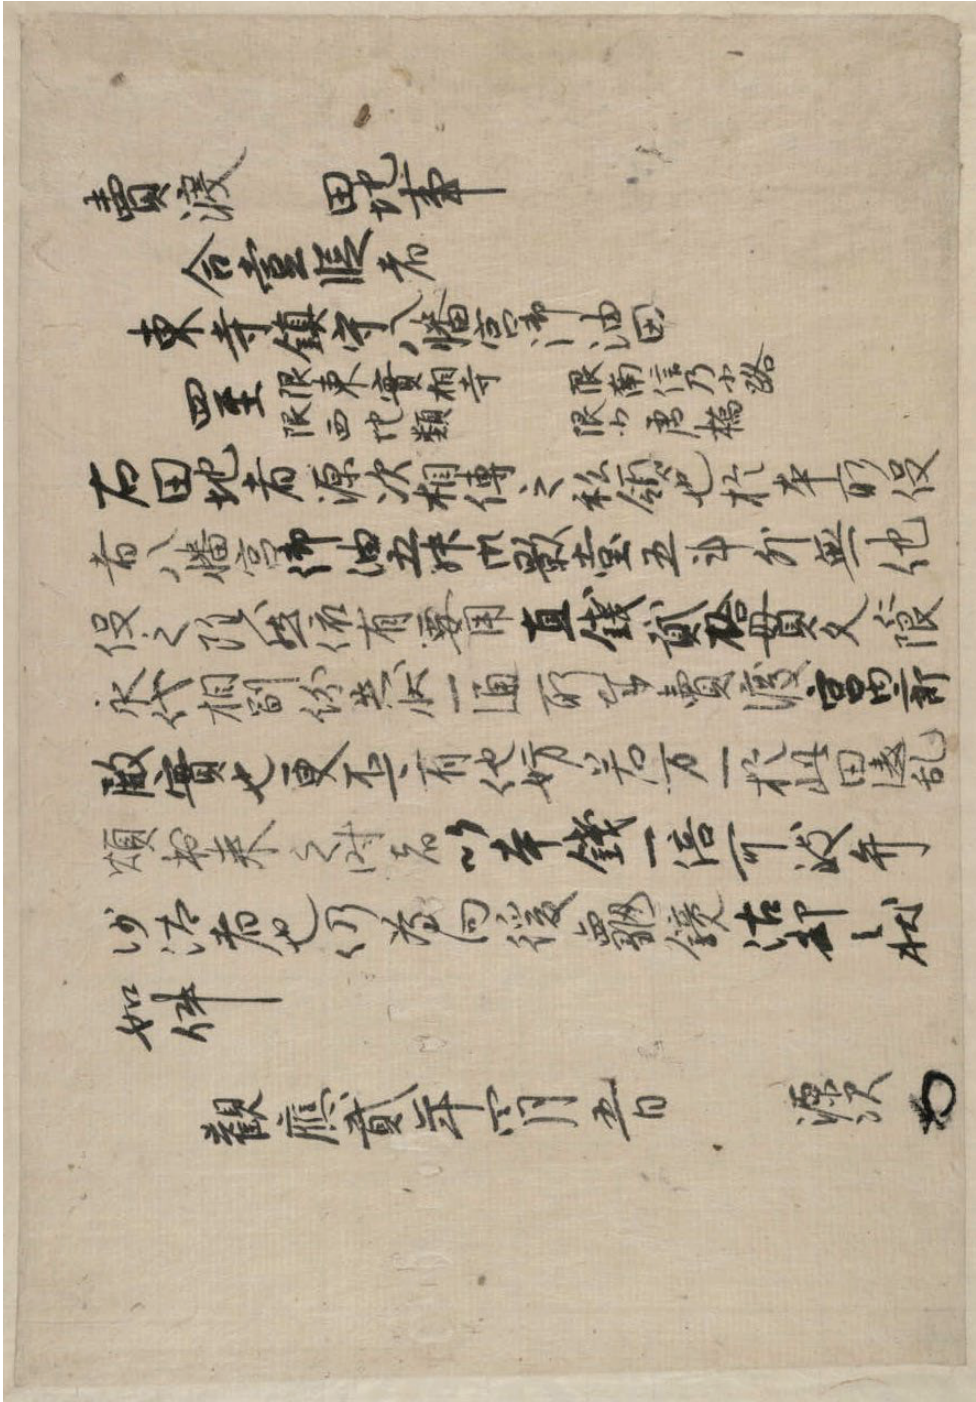 賣渡 田地事
合壹段者
東寺鎮守八幡宮御油田
四至 限東實相寺 限南信乃小路
限西他類 限北唐橋
右田地者源次相傳之私領也於本所役
者八幡宮御油五升代米壹石五斗外無他
役之隙然依有要用直錢貳拾貫文仁限
永代相副證文一通所令賣渡
實也更不可有他妨若万一於此田違乱
煩出来之時者以本錢一倍可致弁
沙汰者也仍為向後龜鏡沽却之状
如件
觀應貳年六月五日 源次